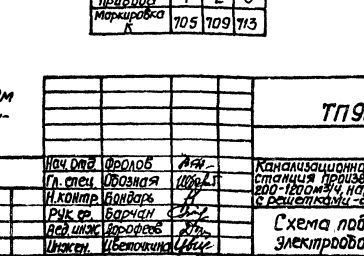 Привода 1 2 3
Маркировка К 705 709 713
ТП 9
Нач. отд. Фролов
Гл. спец. Обозная
Н. контр. Бондарь
Рук. гр. Барчан
Вед. инж. Дорофеев
Инжен. Цветочкина
Канализационна
станция произв
200-1200м³/ч, на
с решетками-
Схема под
электрообо